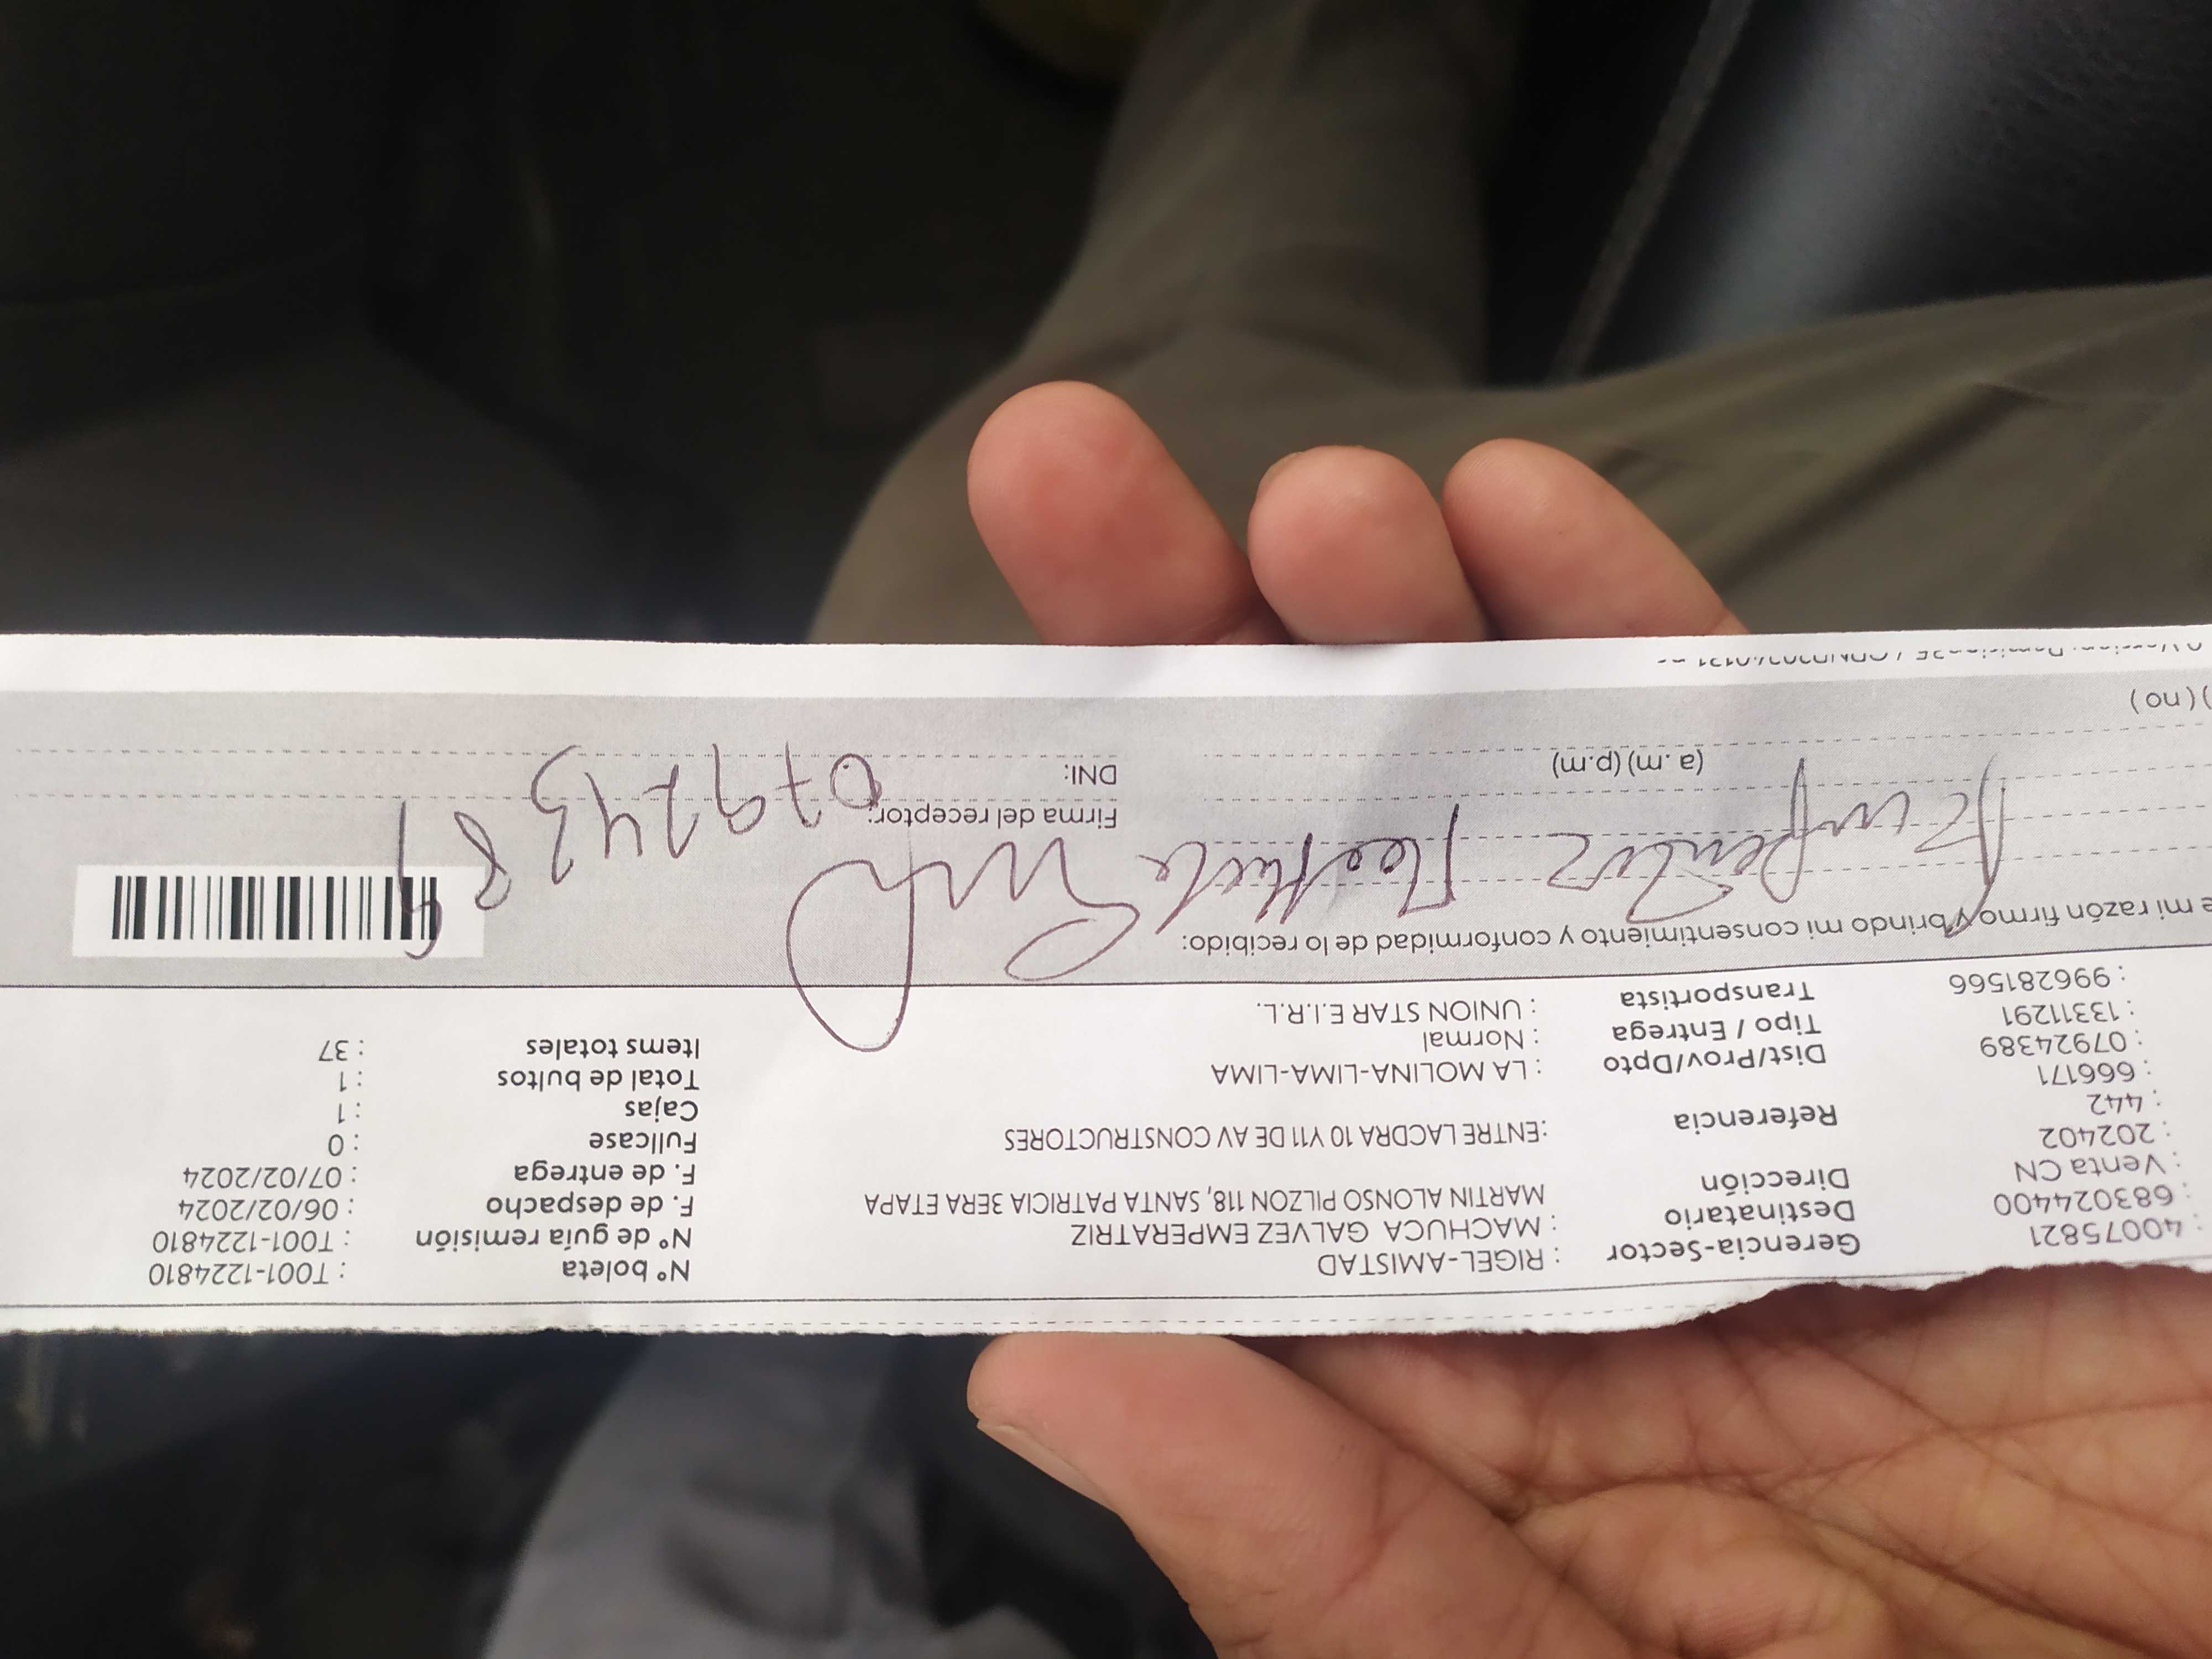 : 40075821 Gerencia-Sector : RIGEL-AMISTAD Nº boleta : T001-1224810
: 683024400 Destinatario : MACHUCA GALVEZ EMPERATRIZ Nº de guía remisión : T001-1224810
: Venta CN Dirección MARTIN ALONSO PILZON 118, SANTA PATRICIA 3ERA ETAPA F. de despacho : 06/02/2024
: 202402 F. de entrega : 07/02/2024
: 442 Referencia :ENTRE LACDRA 10 Y11 DE AV CONSTRUCTORES Fullcase : 0
: 666171 Cajas : 1
: 07924389 Dist/Prov/Dpto : LA MOLINA-LIMA-LIMA Total de bultos : 1
: 13311291 Tipo / Entrega : Normal Items totales : 37
: 996281566 Transportista : UNION STAR E.I.R.L.
e mi razón firmo y brindo mi consentimiento y conformidad de lo recibido:
Firma del receptor:
07924389
(a.m) (p.m) DNI:
) ( no )